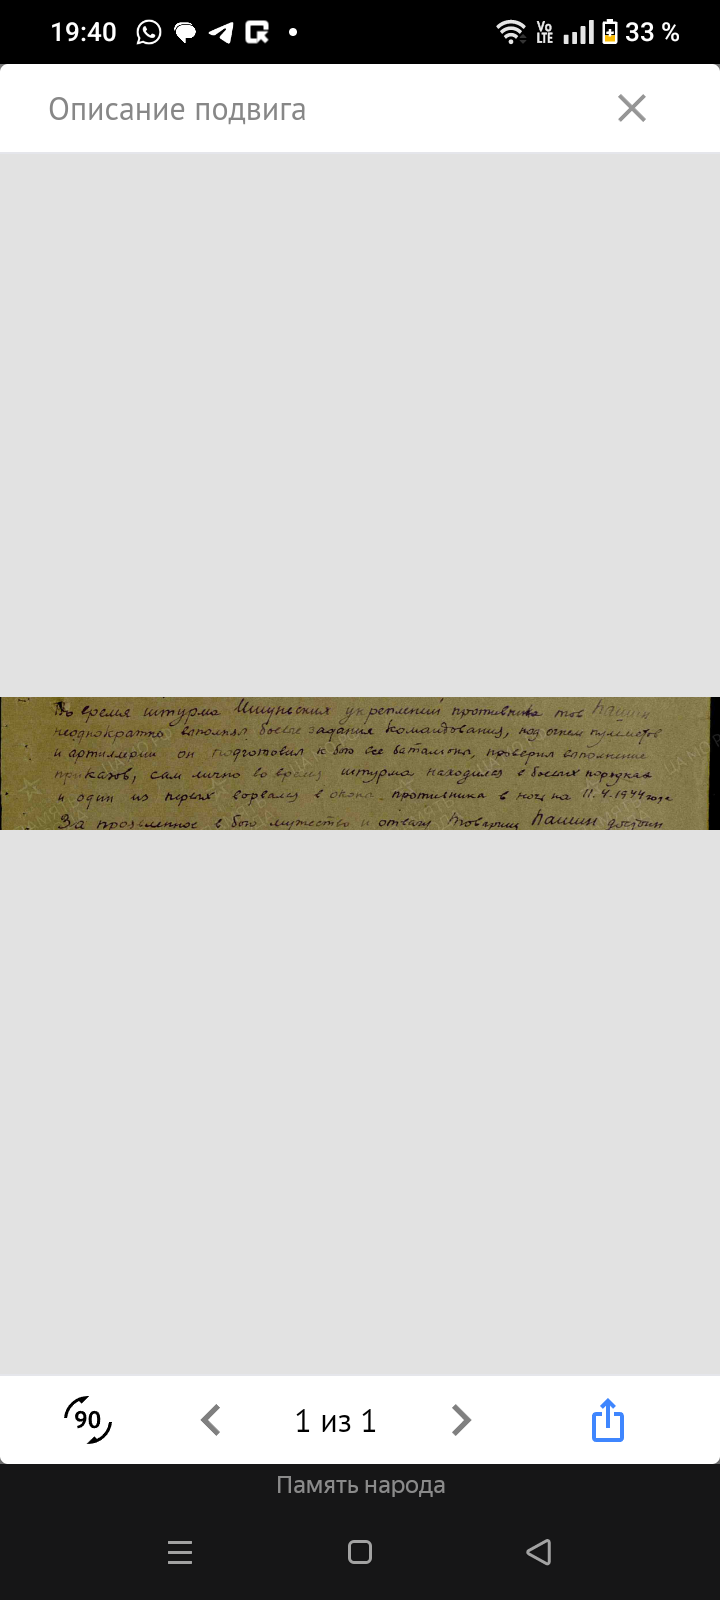 19:40
Vo LTE
33 %
Описание подвига
Во время штурма Ишуньских укреплений противника тов Пашин
неоднократно выполнял боевые задания командования, под огнем пулеметов
и артиллерии он подготовил к бою все батальоны, проверил выполнение
приказов, сам лично во время штурма находился в боевых порядках
и один из первых ворвался в окопы противника в ночь на 11.4.1944 года
За проявленное в бою мужество и отвагу товарищ Пашин достоин
90
1 из 1
Память народа